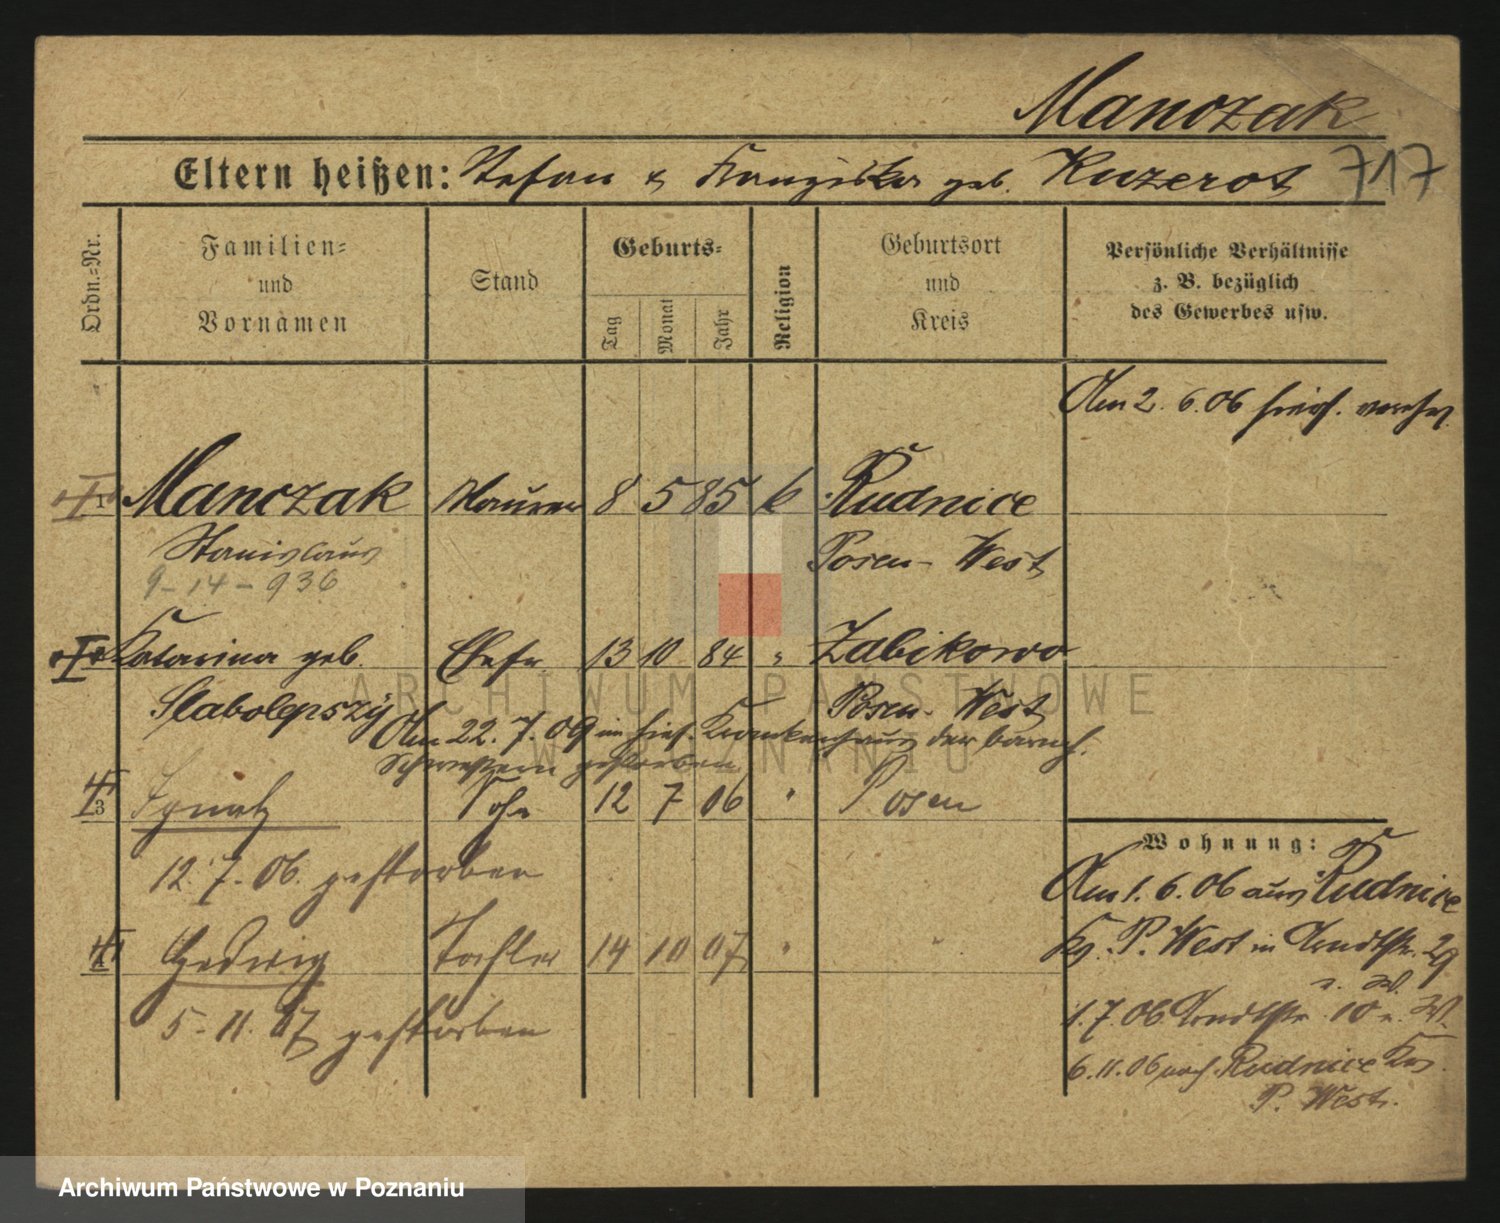 Manczak
Eltern heißen: Stefan & Franziska geb. Kuzerot 717
Ordn.-Nr.
Familien- und Vornamen
Stand
Geburts-
Tag
Monat
Jahr
Religion
Geburtsort und Kreis
Persönliche Verhältnisse
z. B. bezüglich
des Gewerbes usw.
Am 2. 6. 06 hies. vereh.
1 Manczak Maurer 8 5 85 k Rudnice
Stanislaus Posen-West
9-14-936
Katarina geb. Ehefr. 13 10 84 " Zabikowo
Slabolepszy Posen-West
Am 22. 7. 09 im hies. Krankenhaus der barmh.
Schwestern gestorben
3 Ignatz Sohn 12 7 06 " Posen
12. 7. 06. gestorben
4 Hedwig Tochter 14 10 07 "
5-11. 07 gestorben
Wohnung:
Am 1. 6. 06 aus Rudnice
Kr. P. West in Arndtstr. 29
1. 7. 06 Arndtstr. 10
6. 11. 06 nach Rudnice Krs.
P. West.
ARCHIWUM PAŃSTWOWE
W POZNANIU
Archiwum Państwowe w Poznaniu